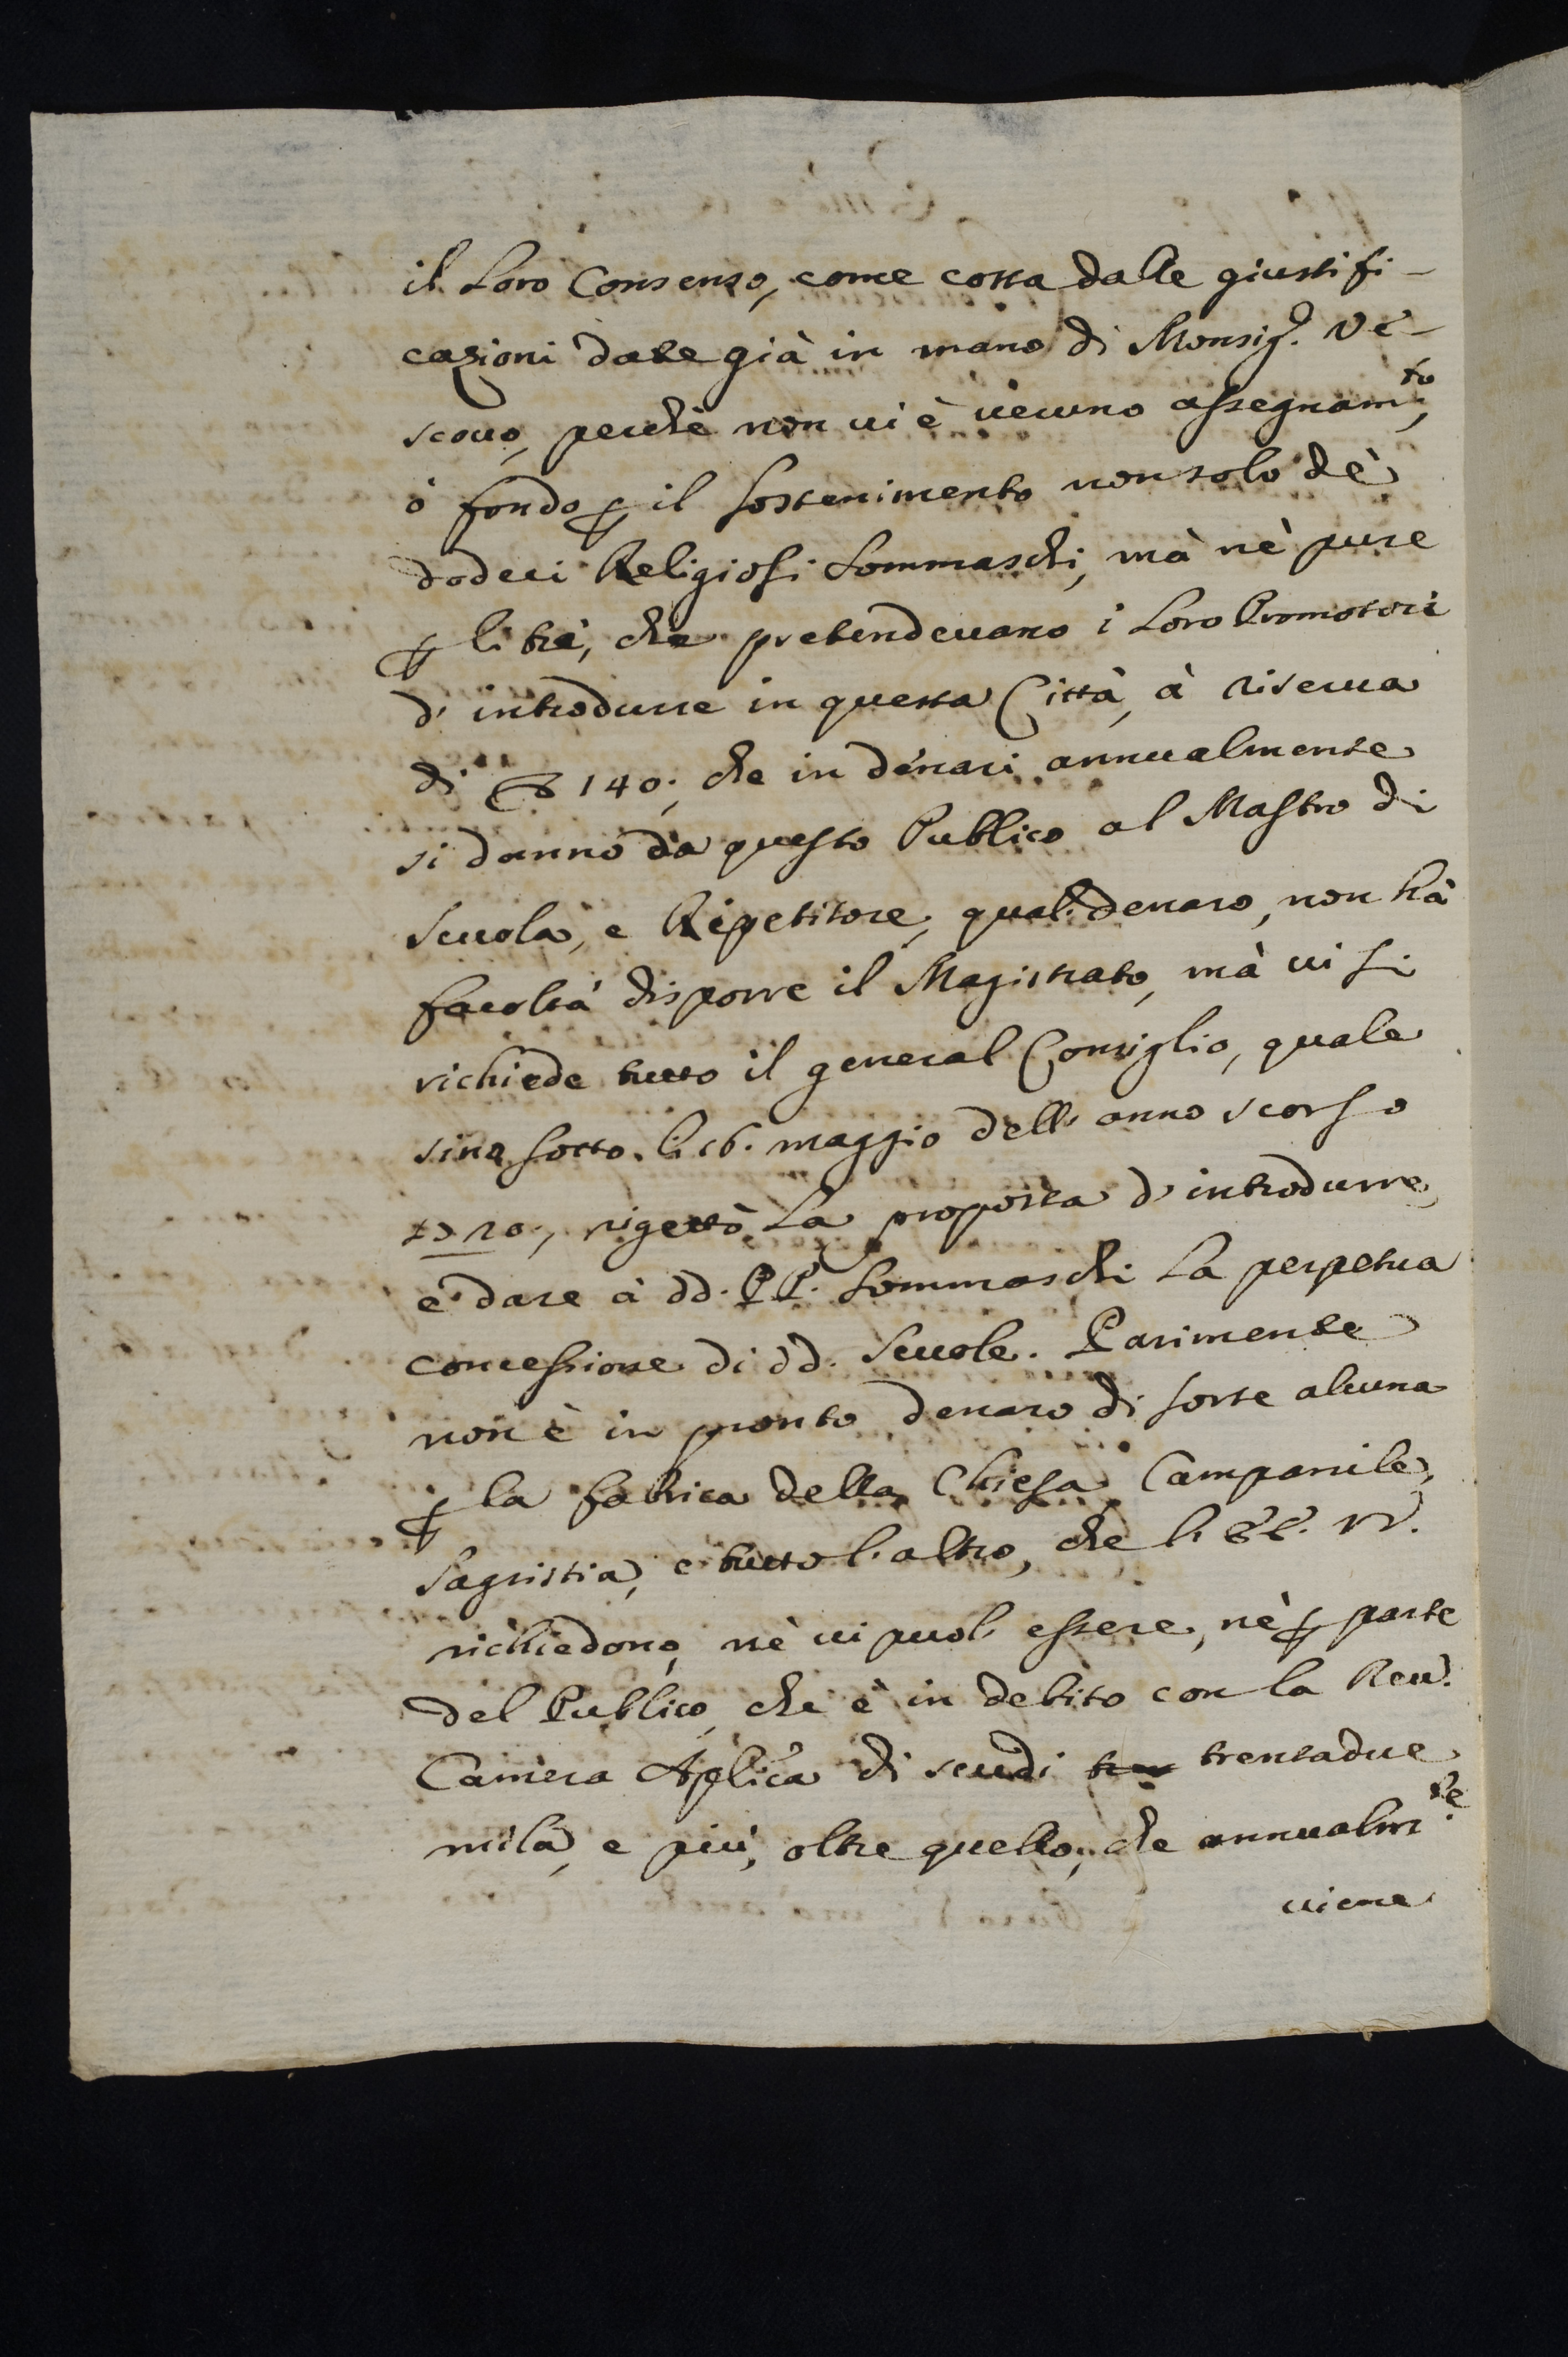 il Loro Consenso, come costa dalle giustifi-
cazioni date già in mano di Monsig.r Ve-
scovo, perche non vi è veruno assegnam.to,
ò fondo per il sostenimento non solo dè
dodeci Religiosi Sommaschi, mà nè pure
per li trè, che pretendevano i Loro Promotori
d'introdurre in questa Città, à riserva
di 140:, che in denari annualmente
si danno da questo Publico al Mastro di
Scuola, e Ripetitore, qual denaro, non hà
facoltà disporre il Magistrato, mà vi si
richiede tutto il general Consiglio, quale
sino sotto li 16. maggio dell'anno scorso
rigettò La proposta d'introdurre,
e dare à dd. PP. Sommaschi La perpetua
concessione di dd. Scuole. Parimente
non è in pronto denaro di sorte alcuna
per la fabrica della Chiesa, Campanile,
Sagristia, e tutto l'altro, che l'EE. VV.
richiedono, nè vi puol essere, nè per parte
del Publico, che è in debito con la Rev.
Camera Aplica di scudi trentadue
mila, e più, oltre quello, che annualm.te
viene